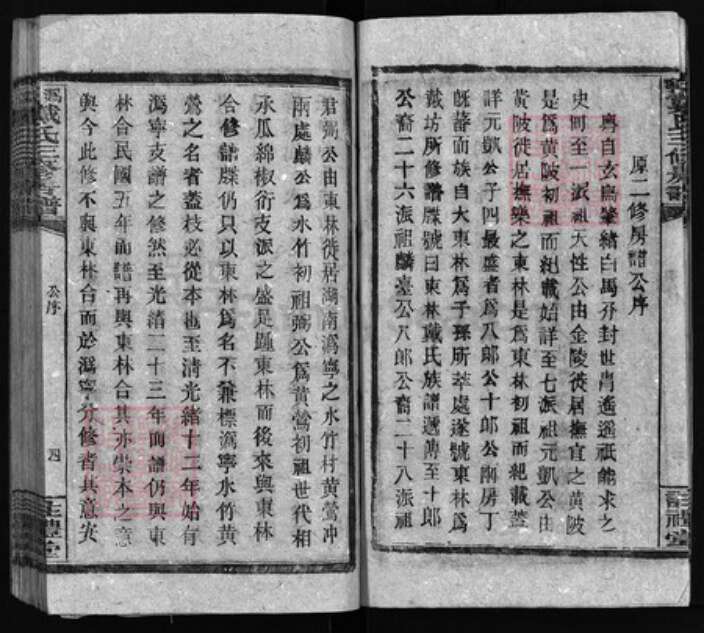 原二修房譜公序
粵自玄鳥肇緒白馬分封世冑遙遙祇能求之
史同至一派祖天性公由金陵徙居撫宜之黃陂
是爲黃陂初祖而紀載始詳至七派祖元凱公由
黃陂徙居撫樂之東林是爲東林初祖而紀載蓋
詳元凱公子四最盛者爲八郞公十郞公兩房丁
旣蕃而族自大東林爲子孫所萃處遂號東林爲
戴坊所修譜牒號曰東林戴氏族譜遞傳至十郞
公裔二十六派祖麟臺公八郞公裔二十八派祖
君弼公由東林徙居湖南潙寧之水竹村黃鶯冲
兩處麟公爲水竹初祖弼公爲黃鶯初祖世代相
承瓜綿椒衍支派之盛足踵東林而後來與東林
合修譜牒仍只以東林爲名不兼標潙寧水竹黃
鶯之名者蓋枝必從本也至清光緖十三年始有
潙寧支譜之修然至光緖二十三年而譜仍與東
林合民國五年而譜再與東林合其亦崇本之意
與今此修不與東林合而於潙寧分修者其意安
公序
四